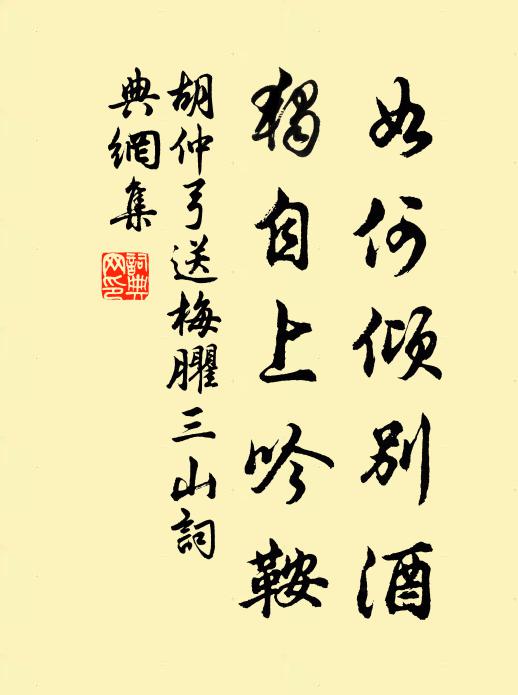 如何倾別酒
獨自上吟鞍
胡仲弓送梅臞三山詞
典網集
詞典
网印